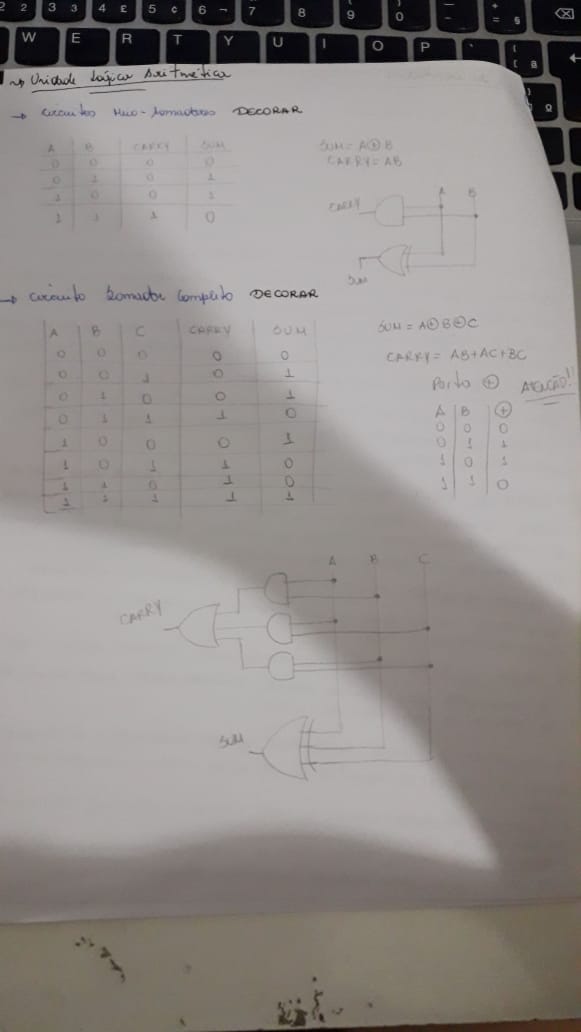 2 2 3 3 4 £ 5 ¢ 6 ¬ 7 8 9 0 - + = §
W E R T Y U I O P
→ Unidade Lógica Aritmética
→ Circuitos Meio-Somadores DECORAR
A B CARRY SUM
0 0 0 0
0 1 0 1
1 0 0 1
1 1 1 0
SUM = A⊕B
CARRY = AB
A B
CARRY
SUM
→ Circuito Somador Completo DECORAR
A B C CARRY SUM
0 0 0 0 0
0 0 1 0 1
0 1 0 0 1
0 1 1 1 0
1 0 0 0 1
1 0 1 1 0
1 1 0 1 0
1 1 1 1 1
SUM = A⊕B⊕C
CARRY = AB+AC+BC
Porta ⊕ ATENÇÃO!!
A B ⊕
0 0 0
0 1 1
1 0 1
1 1 0
A B C
CARRY
SUM